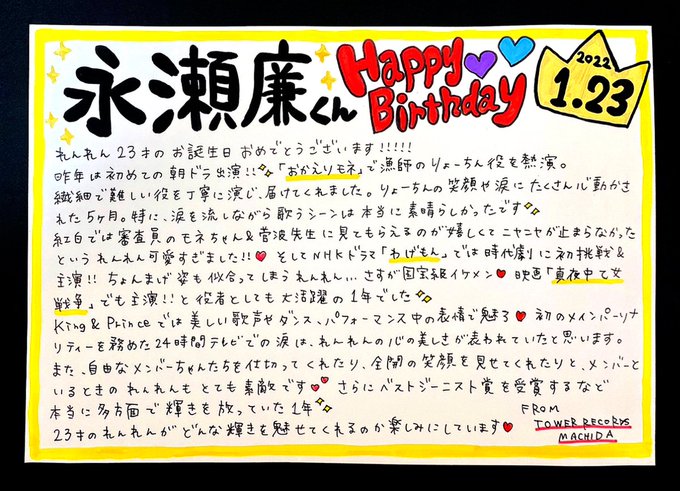 永瀬廉くん
Happy Birthday
2022
1.23
れんれん 23才の お誕生日 おめでとうございます!!!!!
昨年は初めての朝ドラ出演!!「おかえりモネ」で漁師のりょーちん役を熱演。
繊細で難しい役を丁寧に演じ、届けてくれました。りょーちんの笑顔や涙にたくさん心動かさ
れた5ヶ月。特に、涙を流しながら歌うシーンは本当に素晴らしかったです
紅白では審査員のモネちゃん&菅波先生に見てもらえるのが嬉しくてニヤニヤが止まらなかった
というれんれん可愛すぎました!!♥ そしてNHKドラマ「わげもん」では時代劇に初挑戦&
主演!! ちょんまげ姿も似合ってしまうれんれん… さすが国宝級イケメン♥ 映画「真夜中乙女
戦争」でも主演!!と役者としても大活躍の1年でした
King & Princeでは美しい歌声やダンス、パフォーマンス中の表情で魅了♥ 初のメインパーソナ
リティーを務めた24時間テレビでの涙は、れんれんの心の美しさが表われていたと思います。
また、自由なメンバーちゃんたちを仕切ってくれたり、全開の笑顔を見せてくれたりと、メンバーと
いるときのれんれんもとても素敵です♥ さらにベストジーニスト賞を受賞するなど
本当に多方面で輝きを放っていた1年
23才のれんれんがどんな輝きを魅せてくれるのか楽しみにしています♥
FROM
TOWER RECORDS
MACHIDA